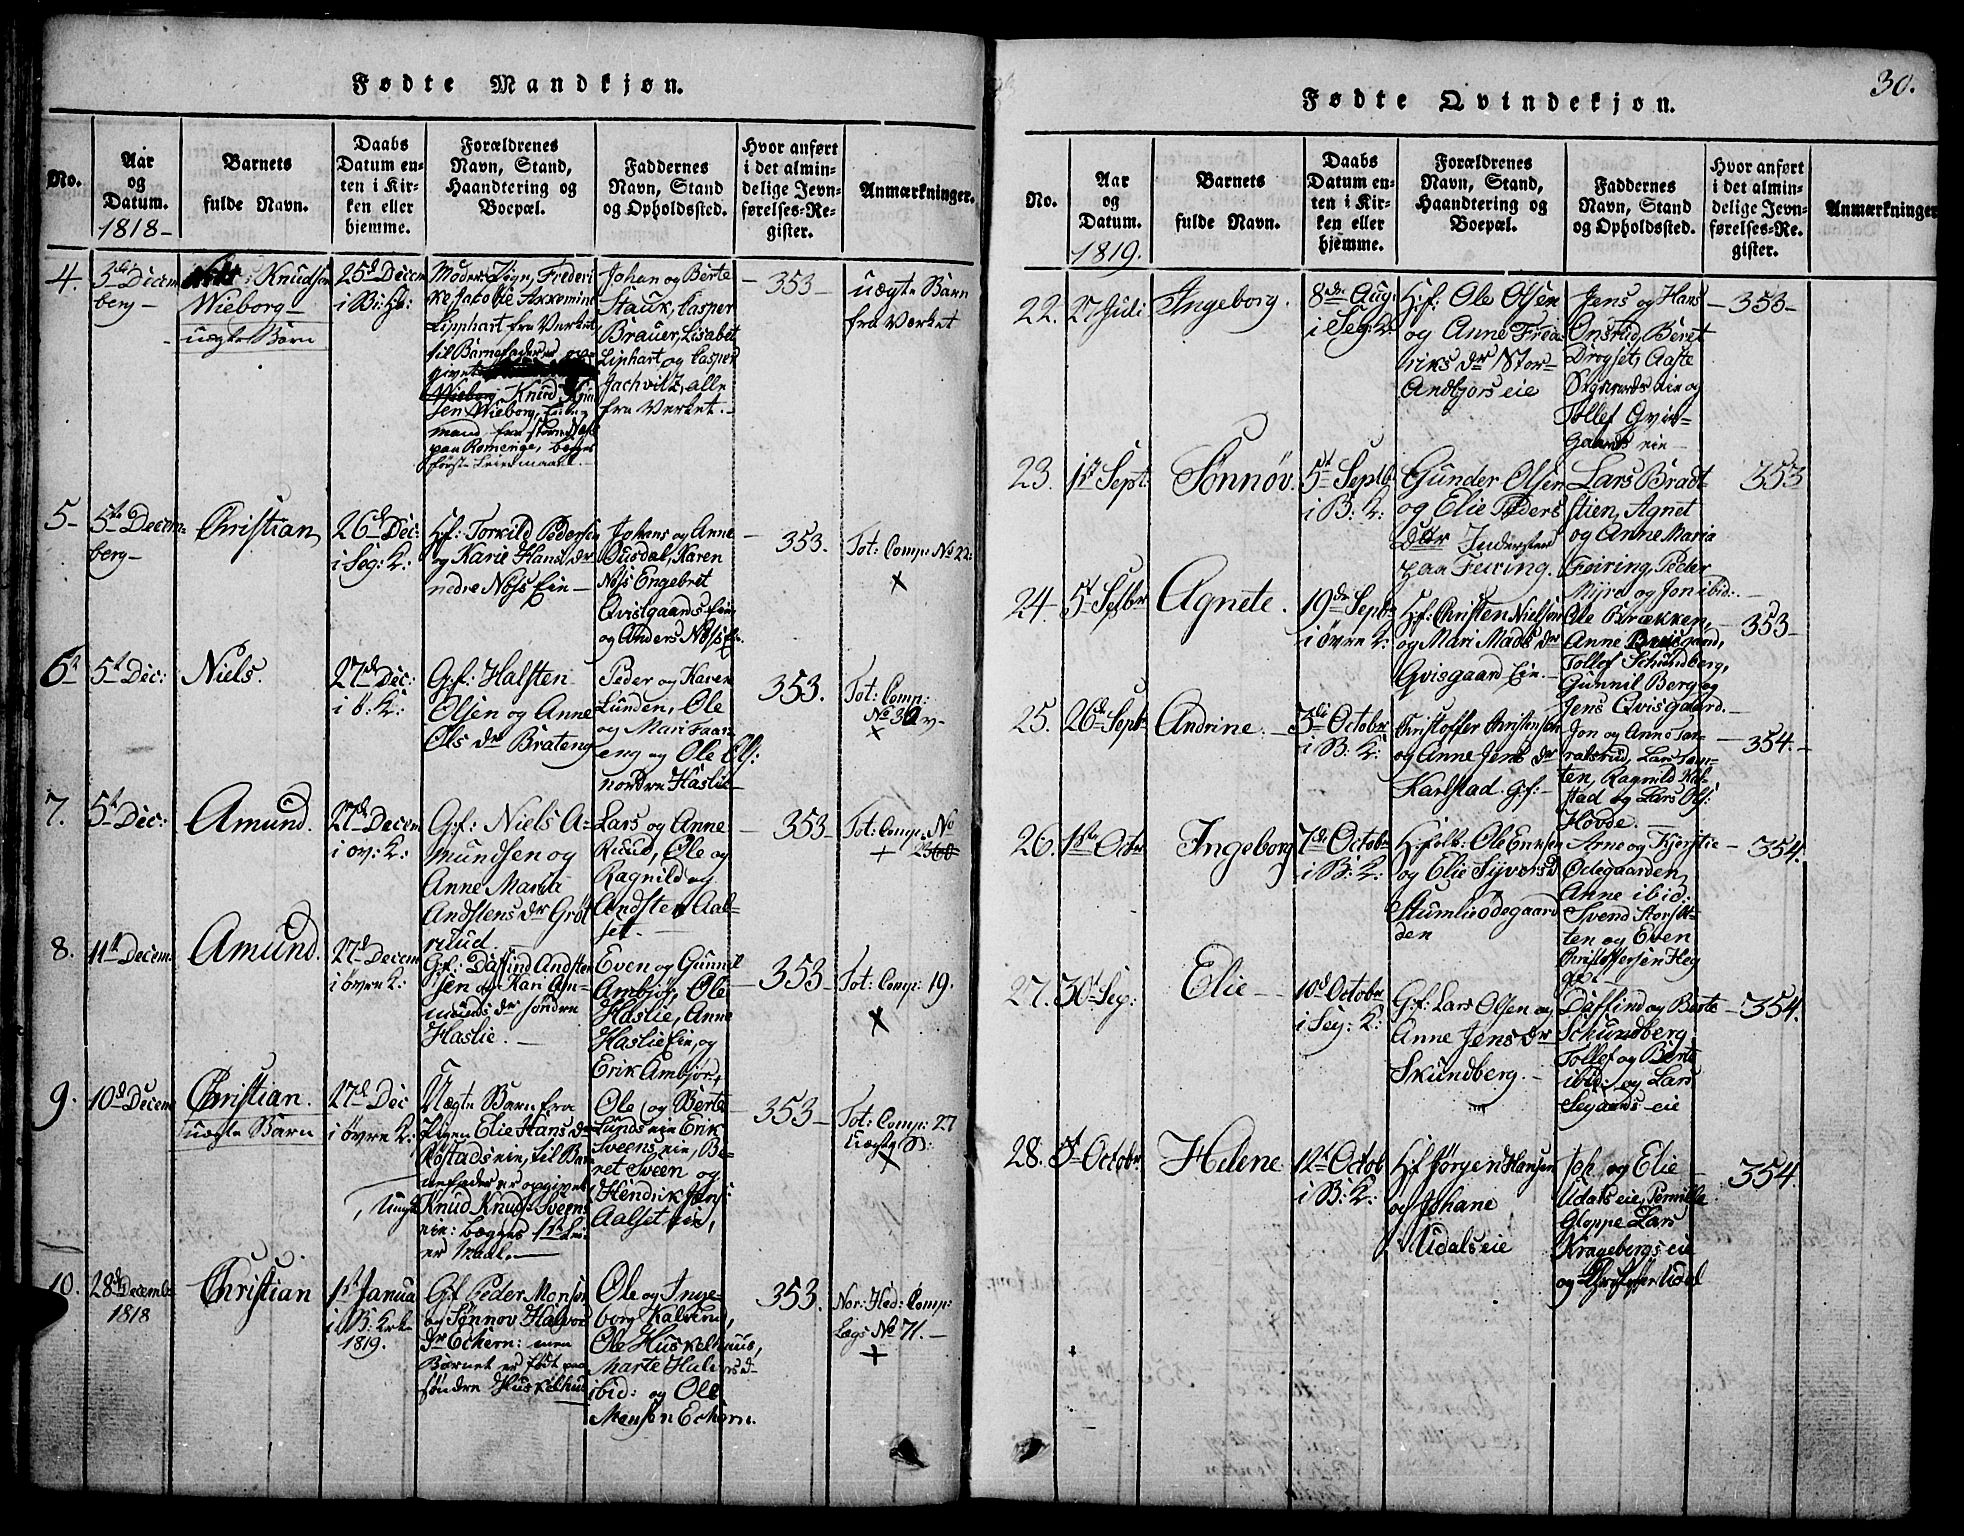 Fødte Mandkjøn.
No.
Aar
og
Datum.
1818-
Barnets
fulde Navn.
Daabs
Datum en-
ten i Kir-
ken eller
hjemme.
Forældrenes
Navn, Stand,
Haandtering og
Boepæl.
Faddernes
Navn, Stand
og Opholdssted.
Hvor anført
i det almin-
delige Jevn-
førelses-Re-
gister.
Anmærkninger.
4.
3de Decem
berg-
Knudsen
Wieborg-
uægte Barn
25d Decem
i B: K:
Moder: Pigen, Frederi
Lipphart fra Verket
til Barnefader er op-
givet
Wieborg, Knud
sen Wieborg,
paa Romerige, beges
første Leiermaal.-
Johan og Berte
Stauk, Casper
Brauer, Lisabet
Liphart og Casper
Jachvitz, alle
fra Verket.-
353-
uægte Barn
fra Værket
5-
5te Decem-
berg-
Christian
26d Dec:
i Seg: K:
H.f: Torkild Pedersen
og Karie Hans dr
nedre Nøss Ein-
Johans og Anne
Ousdal, Karen
Nøss Engebret
Qvistgaards Ein
og Anders Nøss E.
353.
Tot: Comp: No 22:
×
6t
5t Dec:
Niels.
27de Dec:
i ö: K:
G.f: Halsten
Olsen og Anne
Ols dr Brateng
Peder og Karen
Lunden, Ole
og Mari Faas
eng og Ole Ols:
nordre Haslie
353.
Tot: Comp:
×
7.
5t Dec:
Amund.
27de Decem
i öv: K:
G.f: Niels A-
mundsen og
Anne Maria
Andstens dr Gröt
ruud.
Lars og Anne
Ruud, Ole og
Ragnild og
Andsten Aal-
set.-
353-
Tot: Comp: No
+
8.
11te Decem.
Amund.
27d Decem
i övre K:
G.f: Daffind Andsten
sen og Kari Am-
munds dr söndre
Haslie.-
Even og Gunnil
Ambjör, Ole
Haslie, Anne
Haslie Ein, og
Erik Ambjör,
353-
Tot: Comp: 19.
×
9.
10d Decem
Christian.
uægte Barn
27d Dec
i övre K:
Uægte Barn fra
Pigen Elie Hans dr
Røstads eie, til Bar-
nefader er opgivet
Knud Knuds. Sveens
eie: begges 1st Lei-
er Maal.-
Ole og Berte
Lunds eie Erik
Sveens eie, Be-
ret Sveen og
Hendrik Jens:
Aalset Eie,
353-
Tot: Comp: 27
Uægte B:
×
10.
28d Decemb:
1818
Christian
1st Janua
i B: Kirke
1819.
G.f Peder Monsen
og Sønnov Halvor
dr Eckern: men
Barnet er födt paa
söndre Huskelhus
Ole og Inge-
borg Kalrud,
Ole Huskelhuus,
Marte Halvorsd-
ibid: og Ole
Monsen Eckern.
353.
Nor: Hed: Comp:
Lægs No 71.-
+
30.
Fødte Qvindekjøn.
No.
Aar
og
Datum.
1819.
Barnets
fulde Navn.
Daabs
Datum en-
ten i Kir-
ken eller
hjemme.
Forældrenes
Navn, Stand,
Haandtering og
Boepæl.
Faddernes
Navn, Stand
og Opholdssted.
Hvor anført
i det almin-
delige Jevn-
førelses-Re-
gister.
Anmærkninger
22.
27 Juli
Ingeborg.
8de Aug:
i Seg: K:
H.f: Ole Olsen
og Anne Frede
riks dr Stor-
Andbjørs eie
Jens og Hans
Onsrud, Beret
Drogset, Aaste
Tollef Qvis-
gaards eie
-353-
23.
1st Sept:
Sønnøv.
5t Septb
i B: K:
Gunder Olsen
og Elie Peders
Dtr
paa Feiring.
Lars Bradt-
stien, Agnet
og Anne Maria
Feiring, Peder
og Jon ibid:.-
353
24.
5t Sepbr
Agnete.
19de Septb:
i övre K:
H.f: Christen Nielsen
og Mari Mads dr
Qvisgaard Ein.-
Ole Brækken,
Anne Qvisgaard,
Tollef Schundberg,
Gunnil Berg og
Jens Qvisgaard.-
353-
25.
26d Septb
Andrine.
3die October
i B: K:
Christoffer Christensen
og Anne Jens dr
Karlstad. G.f:-
Jon og Anne Tor-
ralsrud, Lars Tom-
ten, Ragnild Kal-
stad og Lars Ols:
Hovde.
354.-
26.
1ste Octbr
Ingeborg
7de Octobr
i B: K:
H.folk: Ole Eriksen
og Elie Syversd
Stumliødegaard
den
Arne og Kjerstie
Ødegaarden,
Anne ibid:
Svend Storslet-
ten og Even
Christoffersen Heg
ge.-
354.
27.
30t Sep:
Elie-
10d Octobr
i Seg: K:
G.f: Lars Olsen og
Anne Jens dr
Skundberg.-
Daffind og Berte
Schundberg
Tollef og Berte
ibid: og Lars
Segaards eie
-354.
28.
5t Octobr
Helene
12te Octob
i B: K:
H.f Jörgen Hansen
og Johane
Udals eie
Joh. og Elie
Udals eie, Pernille
Gloppe Lars
Kragebergs eie
og Christoffer Udal
354.